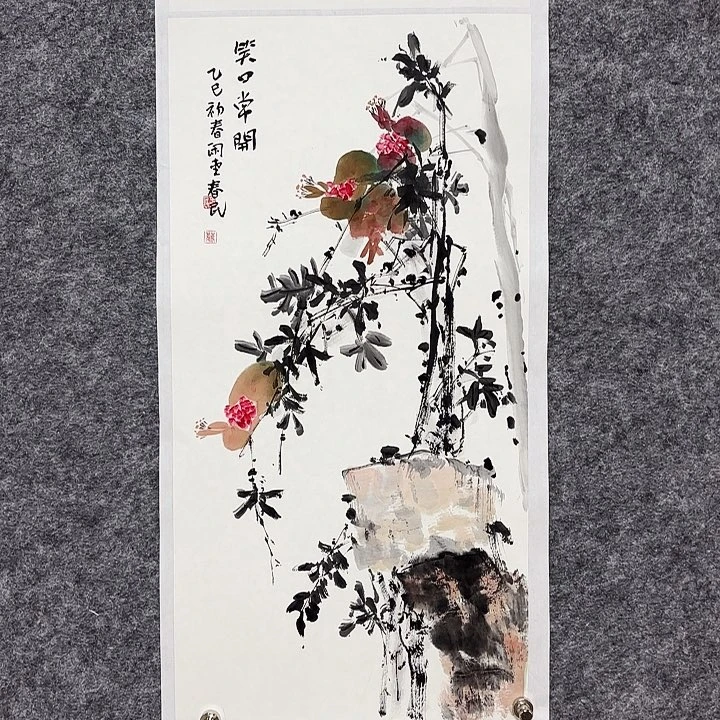 笑口常開
乙巳初春闲堂春民